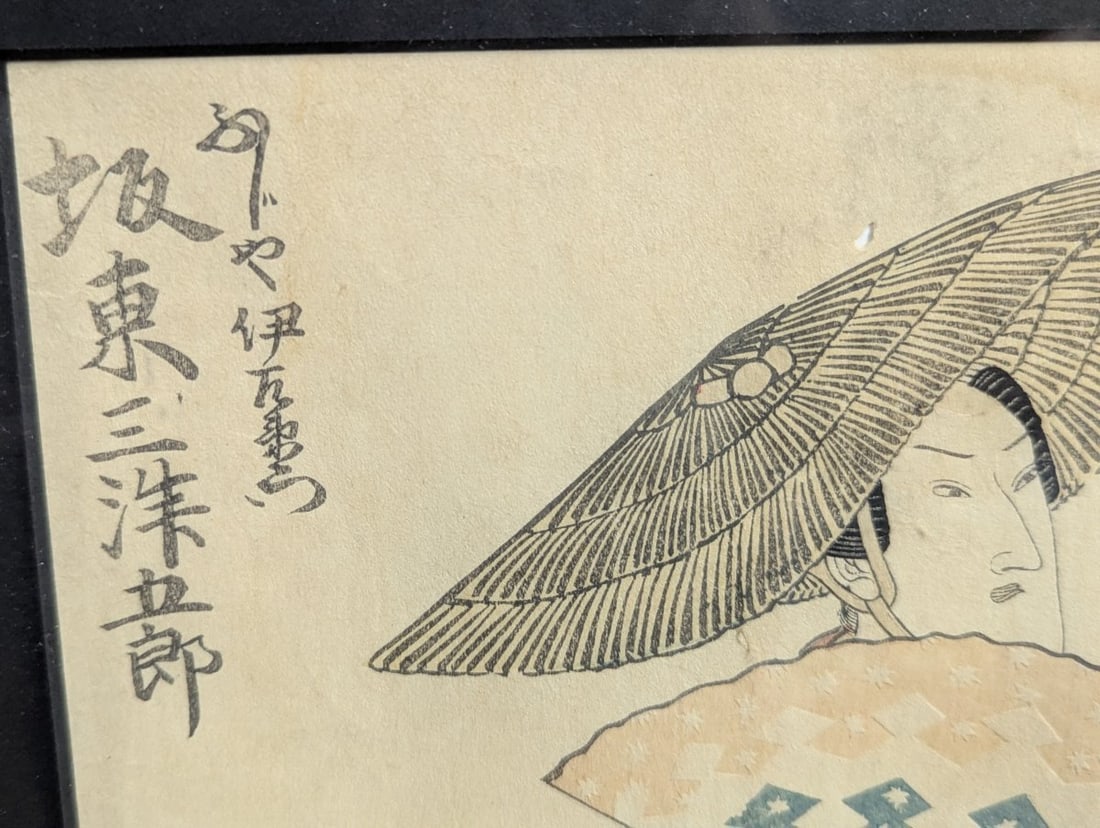 ふじや伊左衛門
坂東三津五郎